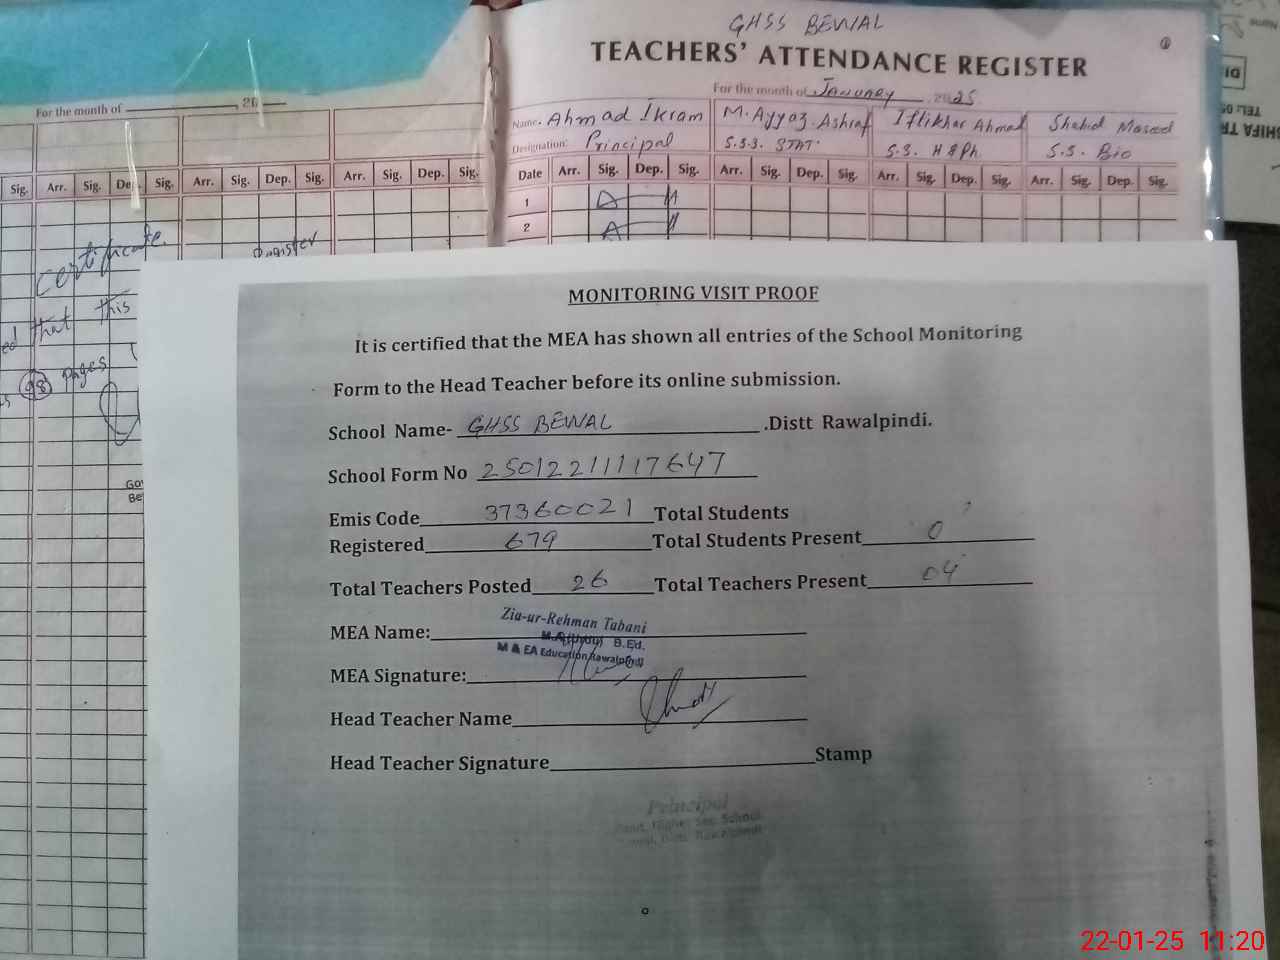 GHSS BEWAL
TEACHERS' ATTENDANCE REGISTER
For the month of January 2025
Name: Ahmad Ikram M. Ayyaz Ashraf Iftikhar Ahmad Shahid Masood
Designation: Principal S.S.S. STAT. S.S. H&Ph. S.S. Bio
Date Arr. Sig. Dep. Sig. Arr. Sig. Dep. Sig. Arr. Sig. Dep. Sig. Arr. Sig. Dep. Sig.
1
2
For the month of 20
Sig. Arr. Sig. Dep. Sig. Arr. Sig. Dep. Sig. Arr. Sig. Dep. Sig.
Certificate.
Register
that this
98 Pages
MONITORING VISIT PROOF
It is certified that the MEA has shown all entries of the School Monitoring
Form to the Head Teacher before its online submission.
School Name- GHSS BEWAL .Distt Rawalpindi.
School Form No 25012211117647
Emis Code 37360021 Total Students
Registered 679 Total Students Present 0
Total Teachers Posted 26 Total Teachers Present 04
Zia-ur-Rehman Tabani
MEA Name:
M.A(Urdu) B.Ed.
M & EA Education Rawalpindi
MEA Signature:
Head Teacher Name
Head Teacher Signature Stamp
Principal
22-01-25 11:20